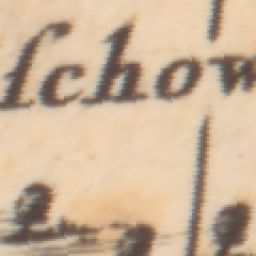 ſchow